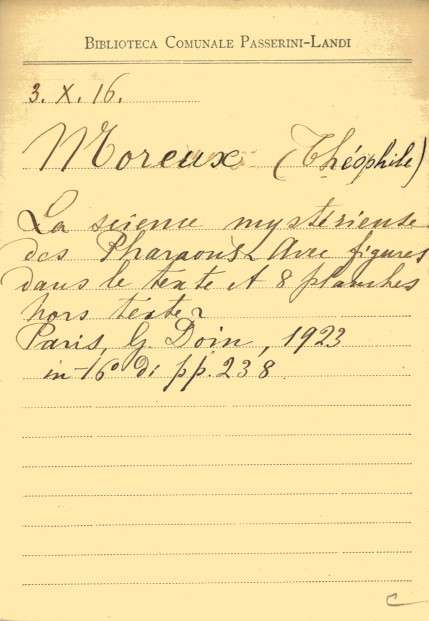 BIBLIOTECA COMUNALE PASSERINI-LANDI
3. X. 16.
Moreux (Théophile)
La science mystérieuse
des Pharaons. Avec figures
dans le texte et 8 planches
hors texte.
Paris, G. Doin, 1923
in-16° di pp. 238
C